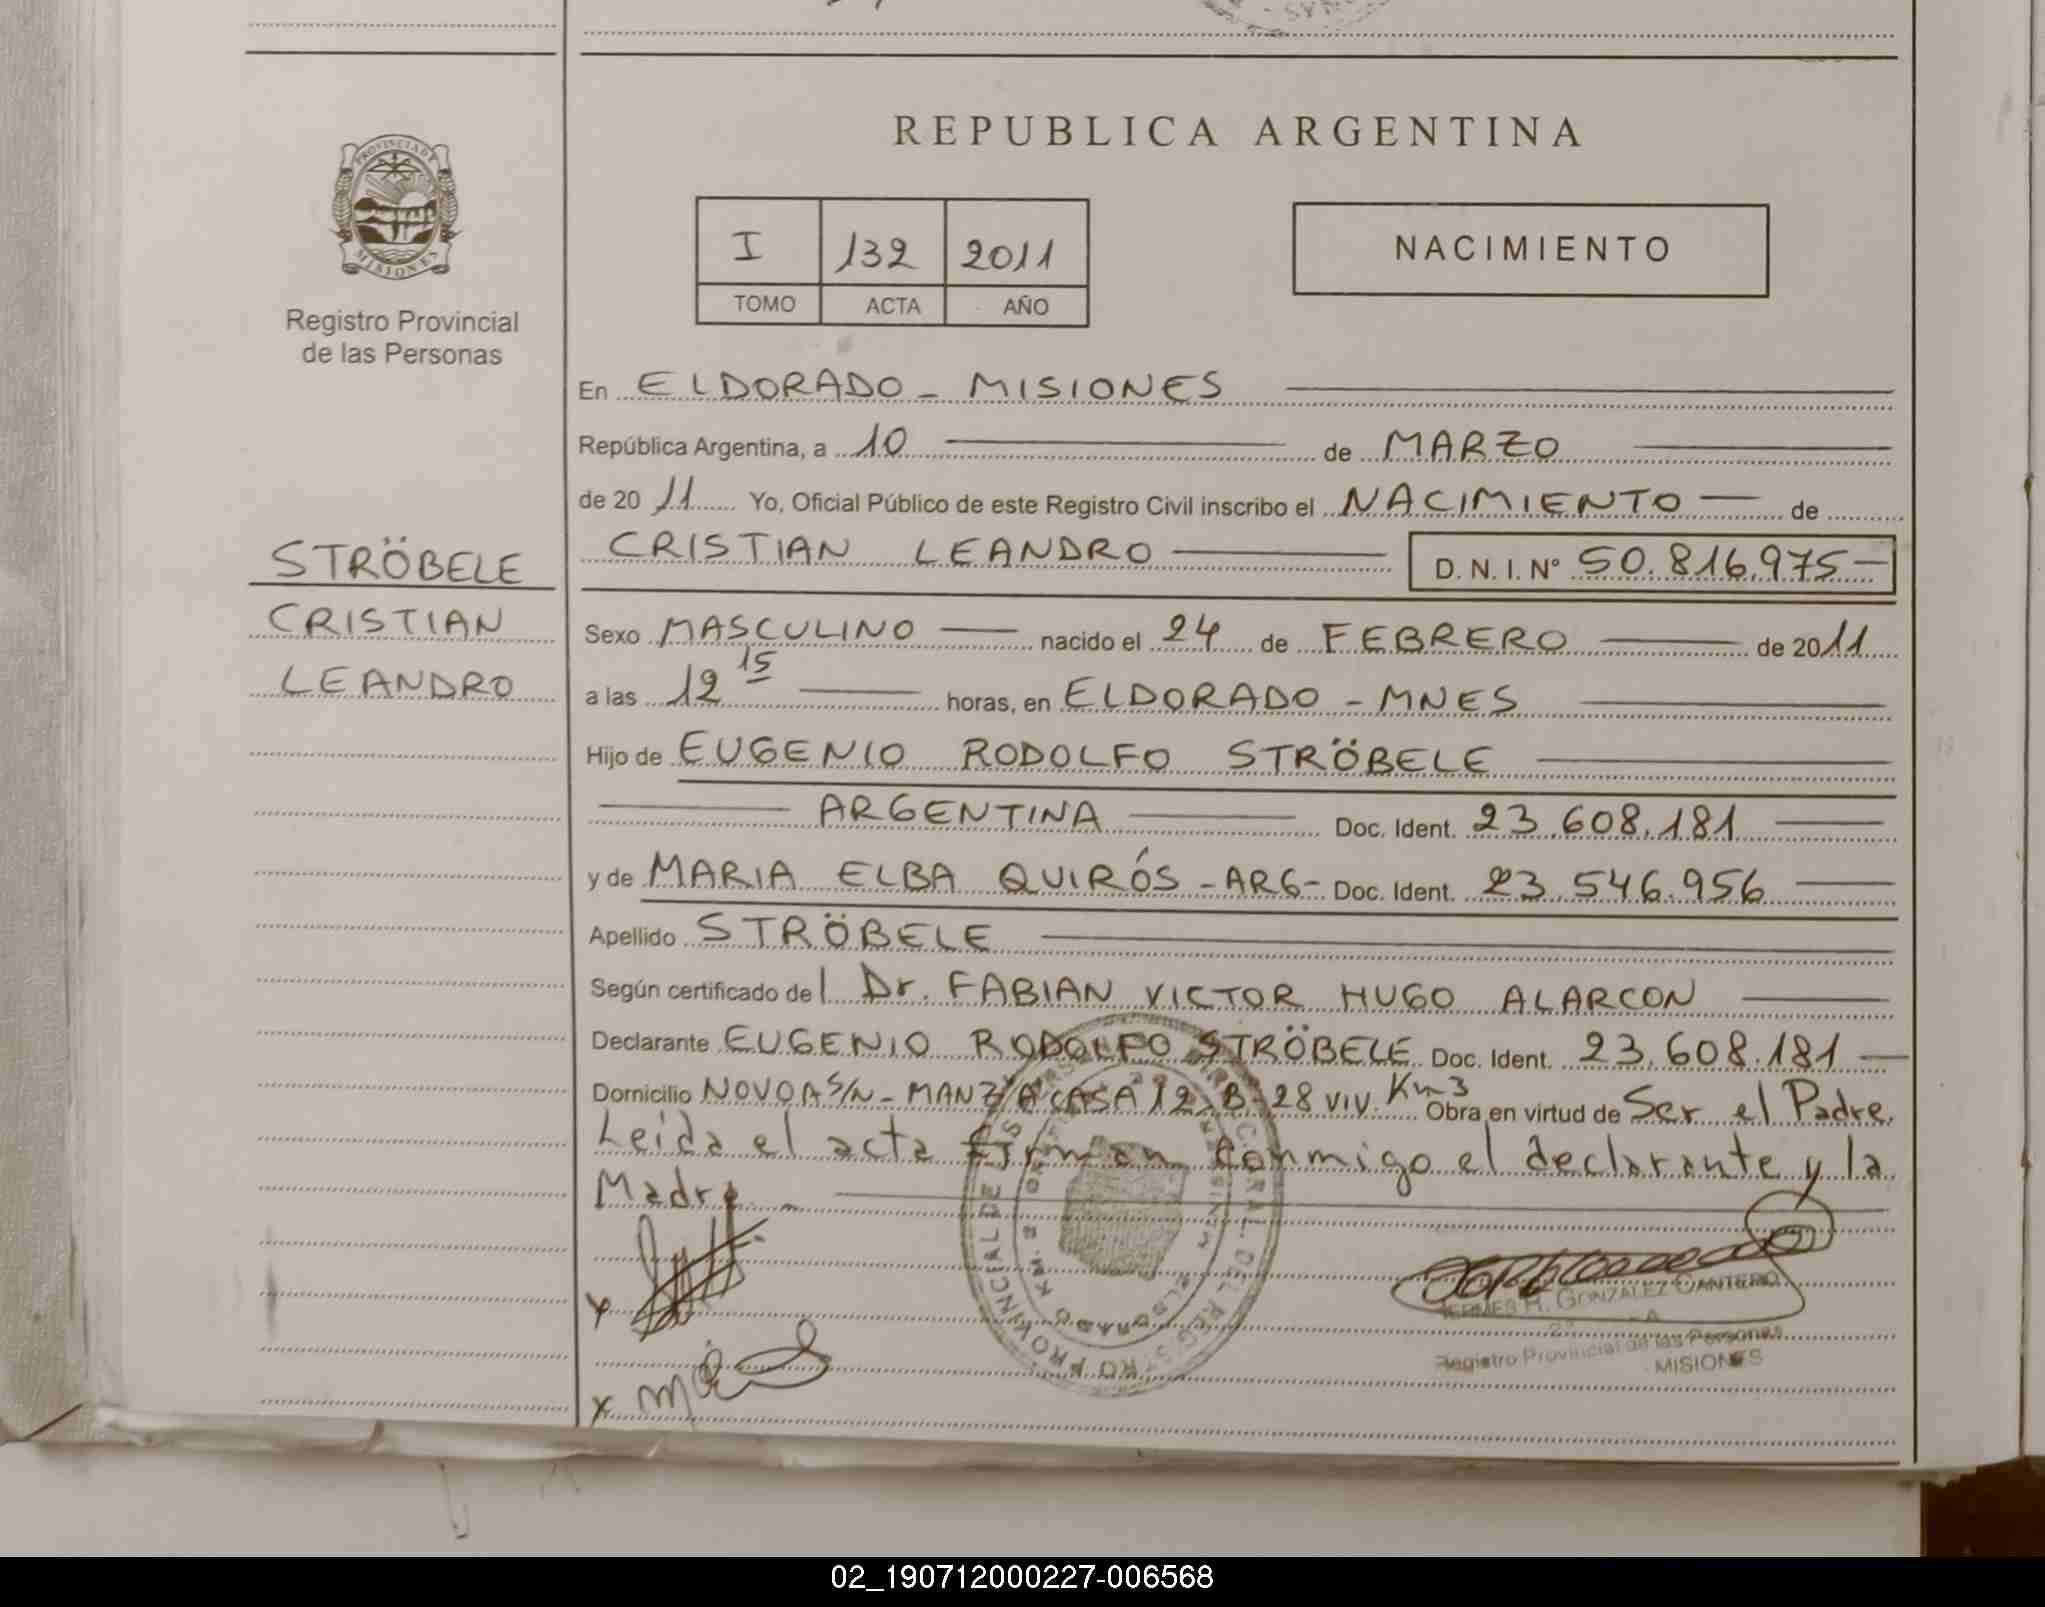 REPUBLICA ARGENTINA
PROVINCIA DE
MISIONES
Registro Provincial
de las Personas
I 132 2011
TOMO ACTA AÑO
NACIMIENTO
En ELDORADO - MISIONES
República Argentina, a 10 de MARZO
de 20 11 Yo, Oficial Público de este Registro Civil inscribo el NACIMIENTO de
CRISTIAN LEANDRO D.N.I. Nº 50.816.975
STRÖBELE
CRISTIAN
LEANDRO
Sexo MASCULINO nacido el 24 de FEBRERO de 2011
a las 12 15 horas, en ELDORADO - MNES
Hijo de EUGENIO RODOLFO STRÖBELE
ARGENTINA Doc. Ident. 23.608.181
y de MARIA ELBA QUIRÓS - ARG - Doc. Ident. 23.546.956
Apellido STRÖBELE
Según certificado del Dr. FABIAN VICTOR HUGO ALARCON
Declarante EUGENIO RODOLFO STRÖBELE Doc. Ident. 23.608.181
Domicilio NOVOA S/N - MANZ A CASA 12 B- 28 VIV. Km3 Obra en virtud de Ser el Padre.
Leída el acta firman conmigo el declarante y la
Madre. -
x
x
HERMES R. GONZALEZ CANTERO
Registro Provincial de las Personas
MISIONES
02_190712000227-006568